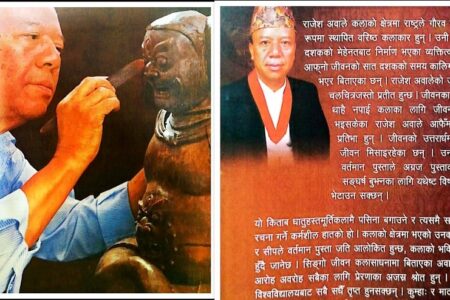 राजेश अवाले कलाको क्षेत्रमा राष्ट्रले गौरव
रूपमा स्थापित वरिष्ठ कलाकार हुन् । उनी
दशकको मेहनतबाट निर्माण भएका व्यक्तित्व
आफ्नो जीवनको सात दशकको समय कालि
भएर बिताएका छन् । राजेश अवालेको ज
चलचित्रजस्तो प्रतीत हुन्छ । जीवनका
थाहै नपाई कलाका लागि जीवन
भइसकेका राजेश अवाले आफैंमा
प्रतिभा हुन् । जीवनको उत्तरार्धमा
जीवन मिसाइरहेका छन् । उन
वर्तमान पुस्ताले अग्रज पुस्ताक
सङ्घर्ष बुझ्नका लागि यथेष्ट विष
भेटाउन सक्छन् ।
यो किताब धातुहस्तमूर्तिकलामै पसिना बगाउने र त्यसमै स
रचना गर्ने कर्मशील हातको हो । कलाको क्षेत्रमा भएको उनक
र सीपले वर्तमान पुस्ता जति आलोकित हुन्छ, कलाको भवि
हुँदै जानेछ । सिङ्गो जीवन कलासाधनामा बिताएका अवा
आरोह अवरोह सबैका लागि प्रेरणाका अजस्र श्रोत हुन् ।
विश्वविद्यालयबाट सबै सधैँ तृप्त हुनसक्छन् । कुम्हाः र मात